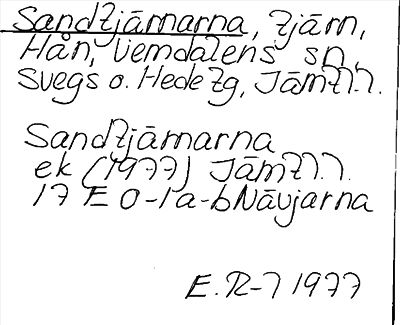 Sandtjärnarna, tjärn,
Hån, Vemdalens sn,
Svegs o. Hede tg, Jämtl.l.
Sandtjärnarna
ek (1977) Jämtl.l.
17 E 0-1a-b Nävjarna
E. R-7 1977